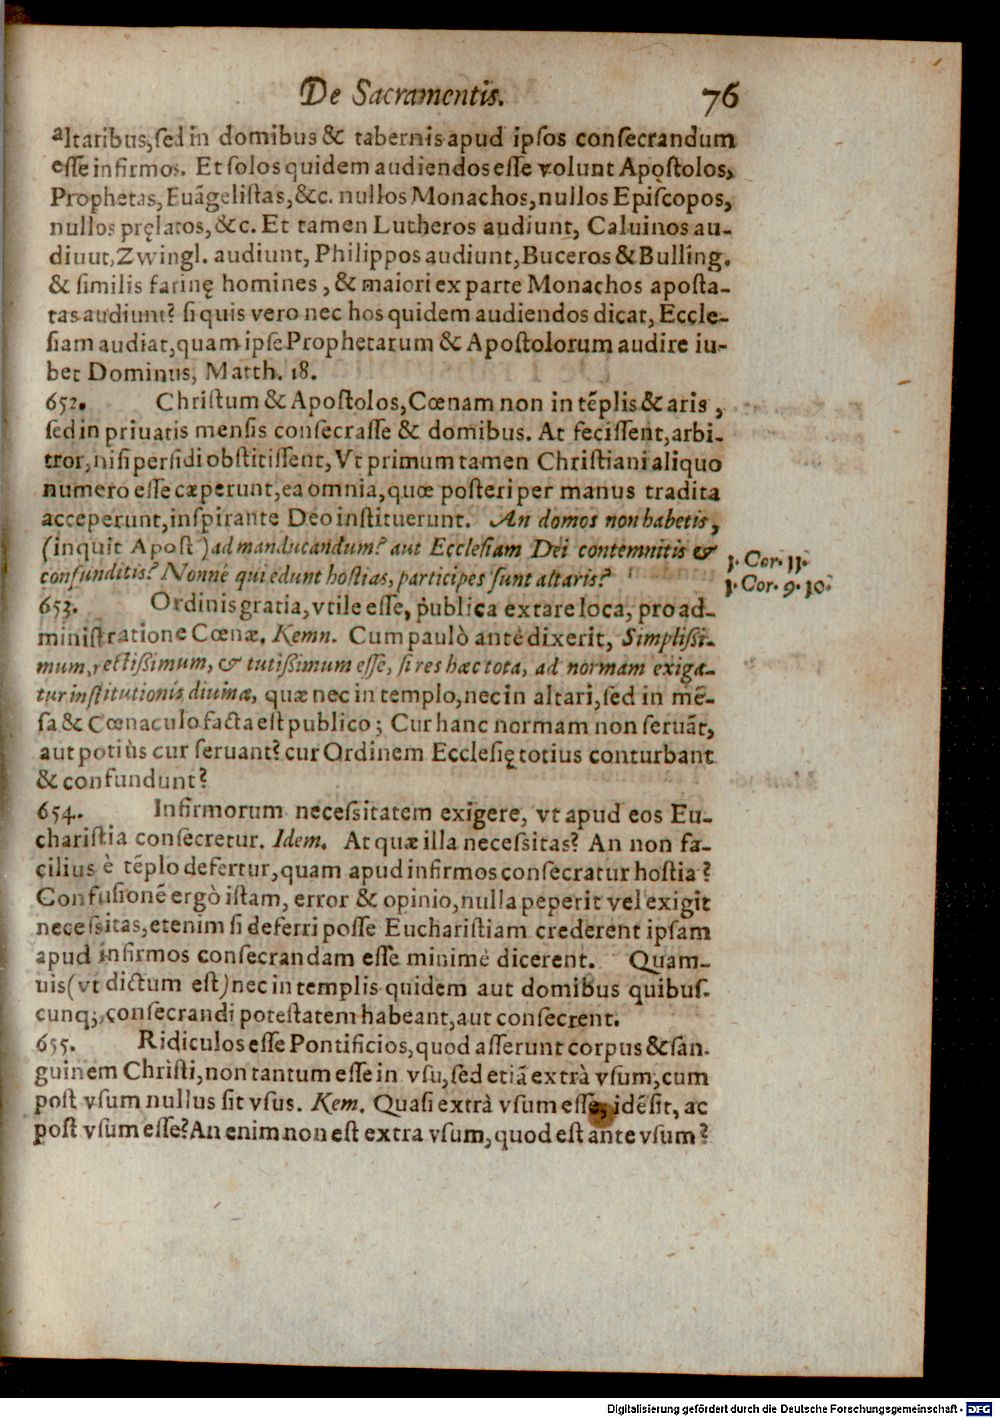 De Sacramentis. 76
altaribus, ſed in domibus & tabernis apud ipſos conſecrandum
eſſe infirmos. Et ſolos quidem audiendos eſſe volunt Apoſtolos,
Prophetas, Euāgeliſtas, &c. nullos Monachos, nullos Epiſcopos,
nullos pręlatos, &c. Et tamen Lutheros audiunt, Caluinos au-
diuut, Zwingl. audiunt, Philippos audiunt, Buceros & Bulling.
& ſimilis farinę homines, & maiori ex parte Monachos apoſta-
tas audiunt? ſi quis vero nec hos quidem audiendos dicat, Eccle-
ſiam audiat, quam ipſe Prophetarum & Apoſtolorum audire iu-
bet Dominus, Matth. 18.
652. Chriſtum & Apoſtolos, Cœnam non in tēplis & aris,
ſed in priuatis menſis conſecraſſe & domibus. At feciſſent, arbi-
tror, niſi perfidi obſtitiſſent, Vt primum tamen Chriſtiani aliquo
numero eſſe cæperunt, ea omnia, quæ poſteri per manus tradita
acceperunt, inſpirante Deo inſtituerunt. An domos non habetis,
(inquit Apoſt) ad manducandum? aut Eccleſiam Dei contemnitis &
confunditis? Nonné qui edunt hoſtias, participes ſunt altaris?
1. Cor. 11.
1. Cor. 9. 10.
653. Ordinis gratia, vtile eſſe, publica extare loca, pro ad-
miniſtratione Cœnæ. Kemn. Cum paulò anté dixerit, Simpliſſi-
mum, rectiſſimum, & tutiſſimum eſſe, ſi res hæc tota, ad normam exiga-
tur inſtitutionis diuinæ, quæ nec in templo, nec in altari, ſed in mē-
ſa & Cœnaculo facta eſt publico; Cur hanc normam non ſeruāt,
aut potiùs cur ſeruant? cur Ordinem Eccleſię totius conturbant
& confundunt?
654. Infirmorum neceſſitatem exigere, vt apud eos Eu-
chariſtia conſecretur. Idem. At quæ illa neceſſitas? An non fa-
cilius è tēplo defertur, quam apud infirmos conſecratur hoſtia?
Confuſionē ergò iſtam, error & opinio, nulla peperit vel exigit
neceſſitas, etenim ſi deferri poſſe Euchariſtiam crederent ipſam
apud infirmos conſecrandam eſſe minimé dicerent. Quam-
uis (vt dictum eſt) nec in templis quidem aut domibus quibuſ-
cunq;, conſecrandi poteſtatem habeant, aut conſecrent.
655. Ridiculos eſſe Pontificios, quod aſſerunt corpus & ſan-
guinem Chriſti, non tantum eſſe in vſu, ſed etiā extrà vſum, cum
poſt vſum nullus ſit vſus. Kem. Quaſi extrà vſum eſſe, idē ſit, ac
poſt vſum eſſe? An enim non eſt extra vſum, quod eſt ante vſum?
Digitalisierung gefördert durch die Deutsche Forschungsgemeinschaft - DFG